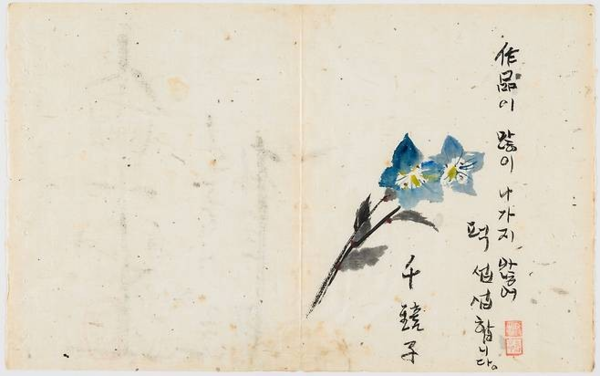 作品이 많이 나가지 않어
퍽 섭섭합니다.
千鏡子